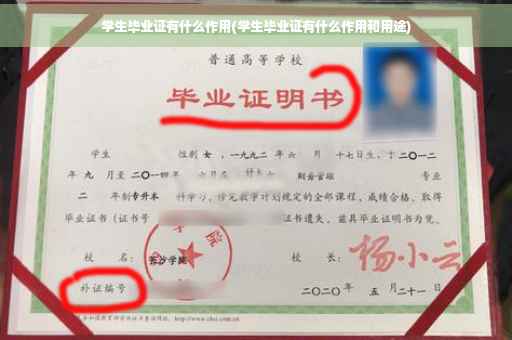 学生毕业证有什么作用(学生毕业证有什么作用和用途)
普通高等学校
毕业证明书
学生 性别 女，一九九二 年 六 月 十七日生，于 二〇一二
年 九 月至 二〇一四 年 六月在 财务管理 专业
二 年制 专升本 科学习，修完教学计划规定的全部课程，成绩合格，取得
毕业证书（证书号 证书遗失，兹具毕业证明书为凭。
校 名： 长沙学院 校 长： 杨小云
补证编号 二〇二〇年 五 月二十一日
http://www.chsi.com.cn